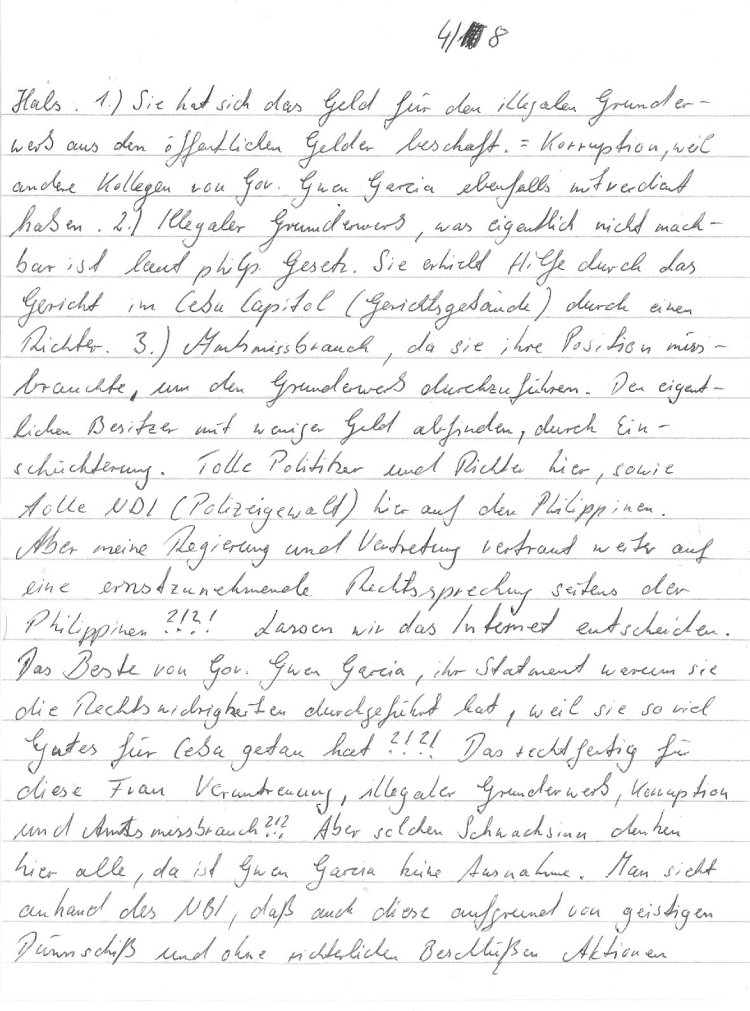 4/8
Hals. 1.) Sie hat sich das Geld für den illegalen Grunder-
werb aus den öffentlichen Gelder beschaft. = Korruption, weil
andere Kollegen von Gov. Gwen Garcia ebenfalls mitverdient
haben. 2.) Illegaler Grunderwerb, was eigentlich nicht mach-
bar ist laut philp. Gesetz. Sie erhielt Hilfe durch das
Gericht im Cebu Capitol (Gerichtsgebäude) durch einen
Richter. 3.) Amtsmissbrauch, da sie ihre Position miss-
brauchte, um den Grunderwerb durchzuführen. Den eigent-
lichen Besitzer mit weniger Geld abfinden, durch Ein-
schüchterung. Tolle Politiker und Richter hier, sowie
tolle NBI (Polizeigewalt) hier auf den Philippinen.
Aber meine Regierung und Vertretung vertraut weiter auf
eine ernstzunehmende Rechtssprechung seitens der
Philippinen ?!?! Lassen wir das Internet entscheiden.
Das Beste von Gov. Gwen Garcia, ihr Statment warum sie
die Rechtswidrigkeiten durchgeführt hat, weil sie so viel
Gutes für Cebu getan hat ?!?! Das rechtfertig für
diese Frau Veruntreuung, illegaler Grunderwerb, Korruption
und Amtsmissbrauch?!? Aber solchen Schwachsinn denken
hier alle, da ist Gwen Garcia keine Ausnahme. Man sieht
anhand des NBI, daß auch diese aufgrund von geistigen
Dünnschiß und ohne richterlichen Beschlüßen Aktionen